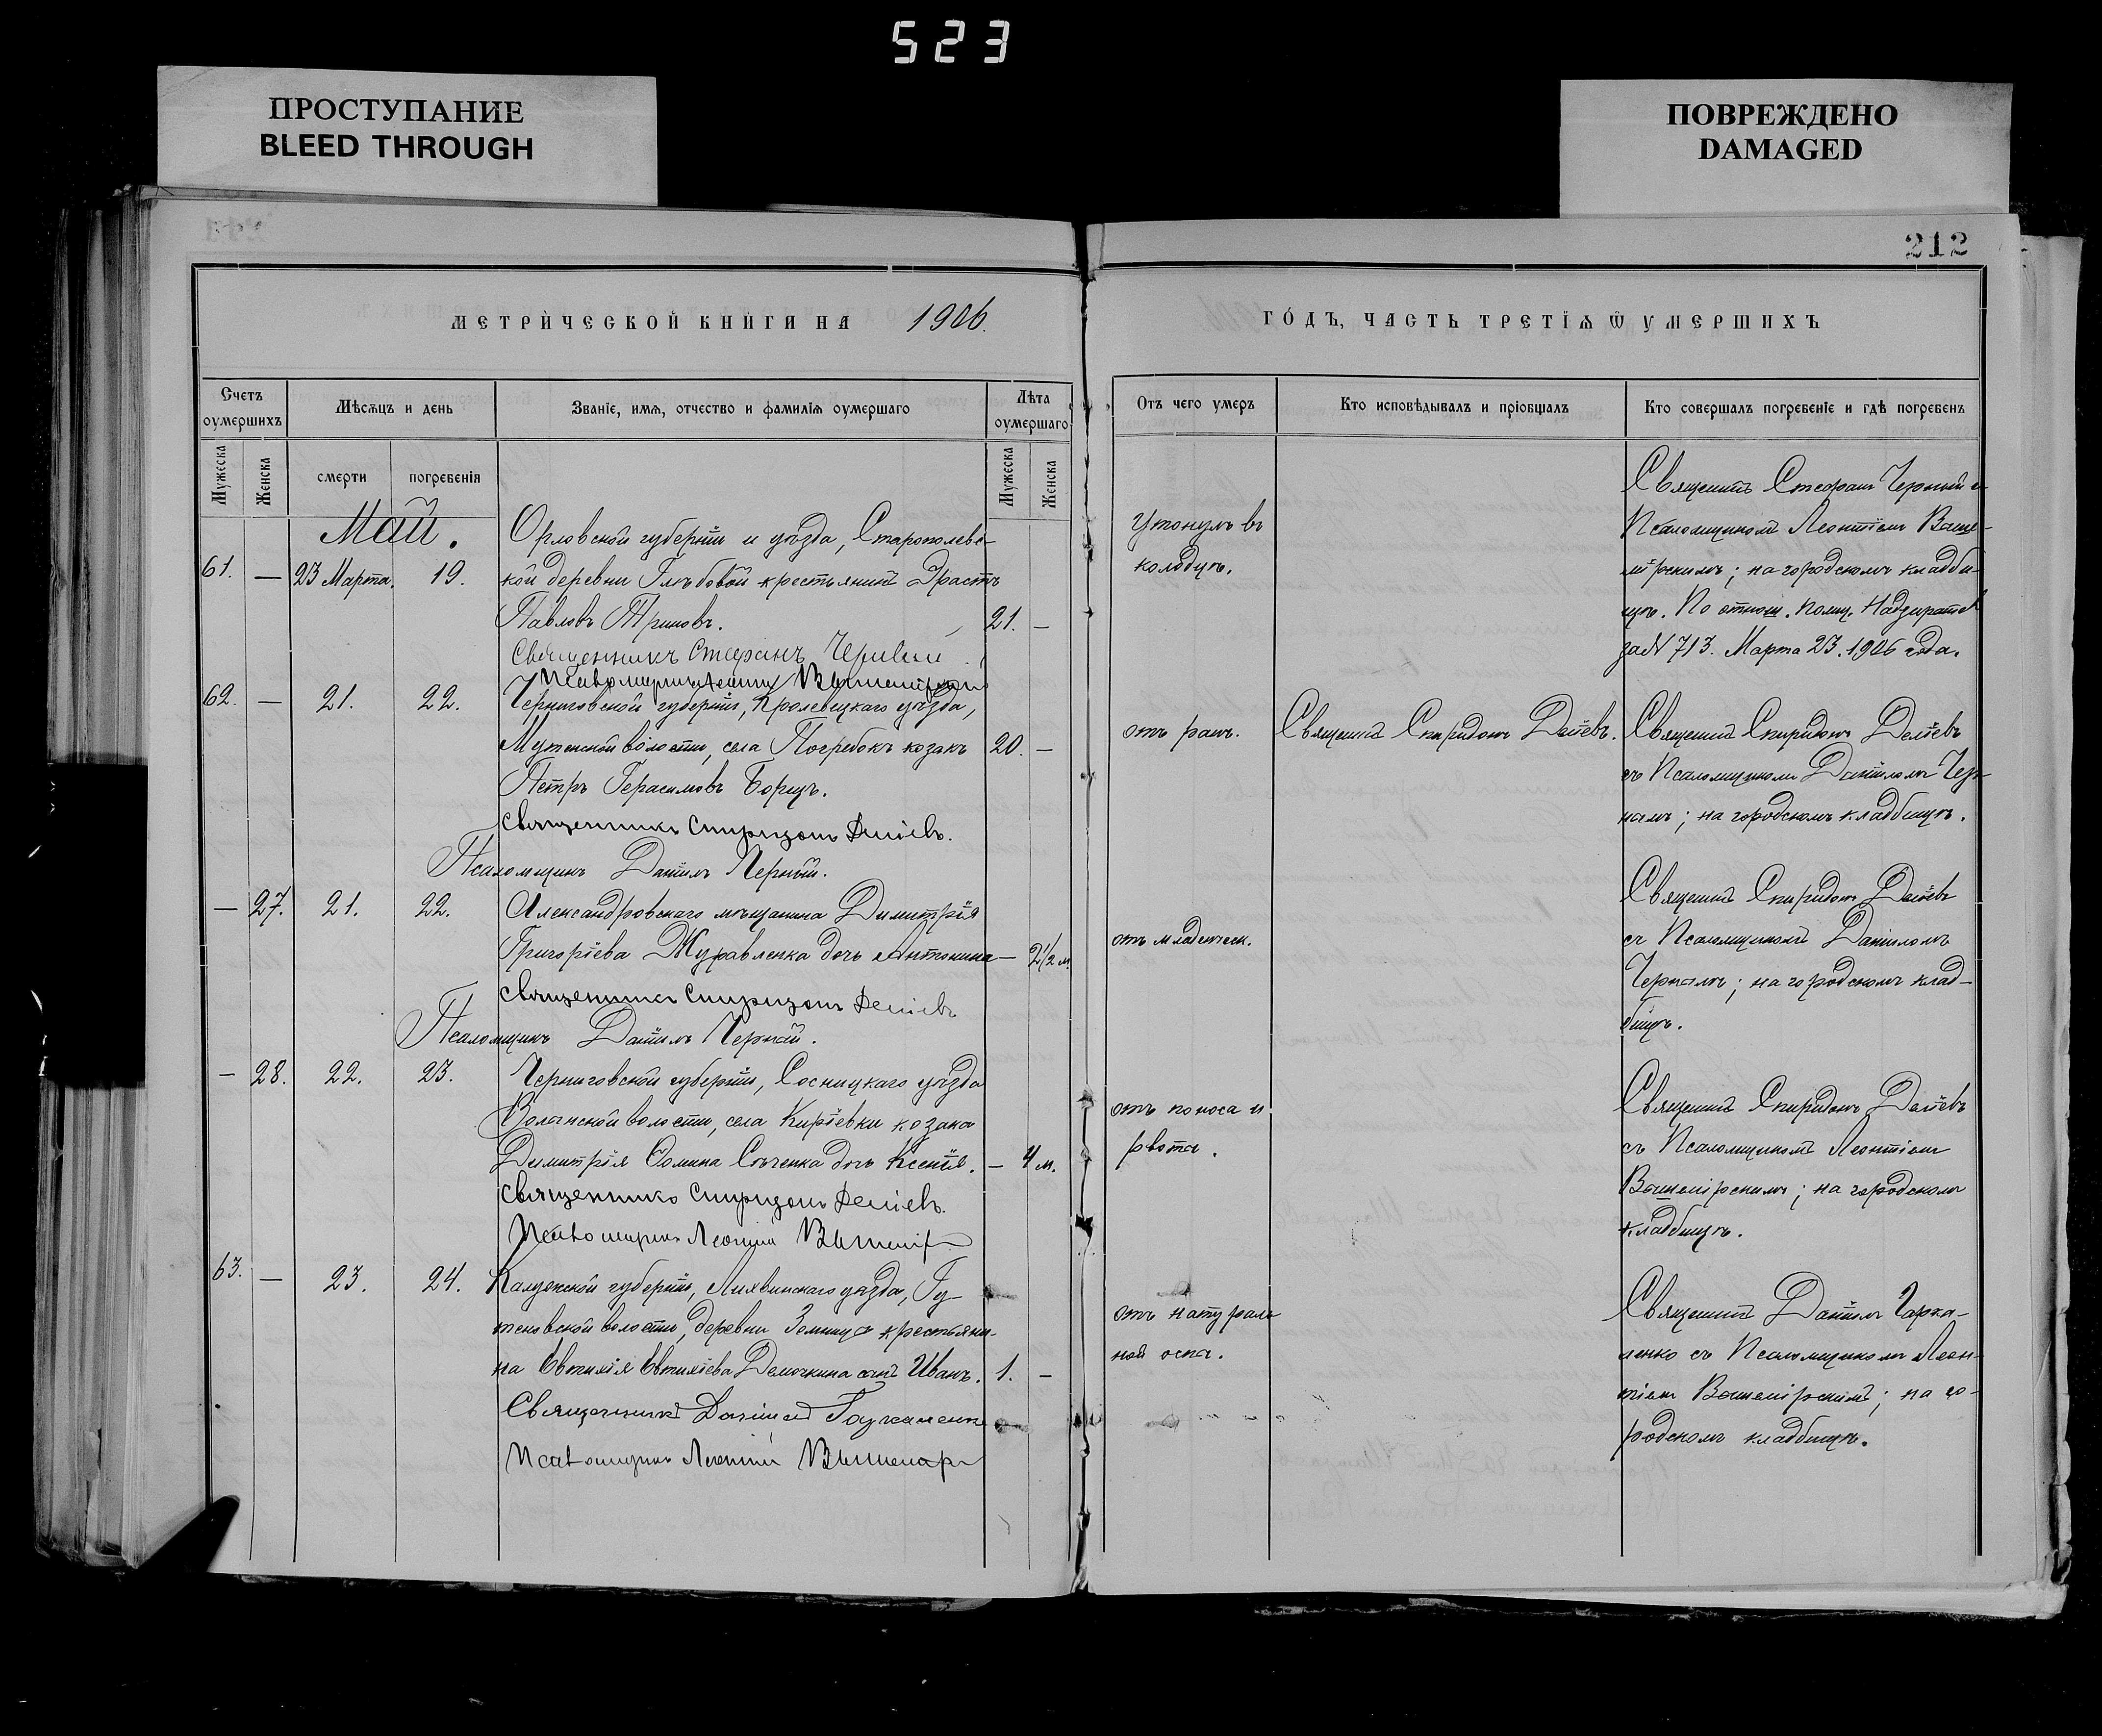 523
ПРОСТУПАНИЕ
BLEED THROUGH
ПОВРЕЖДЕНО
DAMAGED
212
МЕТРИЧЕСКОЙ КНИГИ НА 1906.
ГОДЪ, ЧАСТЬ ТРЕТІѦ Ѿ УМЕРШИХЪ
Счетъ оумершихъ
Мѣсѧцъ и день
Званіе, имѧ, отчество и фамиліѧ оумершаго
Лѣта оумершаго
Отъ чего умеръ
Кто исповѣдывалъ и пріобщалъ
Кто совершалъ погребеніе и гдѣ погребенъ
Мужеска
Женска
смерти
погребеніѧ
Мужеска
Женска
Май.
Орловской губерніи и уѣзда,
61. — 23 Марта. 19.
кой деревни Глѣбовой крестьянинъ Эрастъ
Павловъ 21. —
Священникъ Стефанъ
утонулъ въ
колодцѣ.
Священникъ Стефанъ Черный и
Псаломщикомъ Леонтіемъ
на городскомъ кладби-
щѣ. По отнош. Надзирателя
за № 713. Марта 23. 1906 года.
62. — 21. 22.
Черниговской губерніи, Кролевецкаго уѣзда,
волости, села Погребокъ козакъ 20. —
Петръ Герасимовъ Борщъ.
Священникъ Спиридонъ
Псаломщикъ Даніилъ Черный.
отъ ранъ.
Священникъ Спиридонъ
Священникъ Спиридонъ
съ Псаломщикомъ Даніиломъ Чер-
нымъ; на городскомъ кладбищѣ.
— 27. 21. 22.
Александровскаго мѣщанина Димитрія
Григоріева Журавленка дочь Антонина — 2 1/2 м.
Священникъ Спиридонъ
Псаломщикъ Даніилъ Черный.
отъ младенческ.
Священникъ Спиридонъ
съ Псаломщикомъ Даніиломъ
Чернымъ; на городскомъ клад-
бищѣ.
— 28. 22. 23.
Черниговской губерніи, Сосницкаго уѣзда
Волынской волости, села Киріевки козака
Димитрія дочь Ксенія. — 4 м.
Священникъ Спиридонъ
Псаломщикъ Леонтій
отъ поноса и
рвоты.
Священникъ Спиридонъ
съ Псаломщикомъ Леонтіемъ
на городскомъ
кладбищѣ.
63. — 23. 24.
Калужской губерніи, Лихвинскаго уѣзда,
волости, деревни крестьяни-
на Евтихія Евтихіева Демочкина сынъ Иванъ. 1. —
Священникъ Даніилъ
Псаломщикъ Леонтій
отъ натураль
ной оспы.
Священникъ Даніилъ
съ Псаломщикомъ Леон-
тіемъ на го-
родскомъ кладбищѣ.